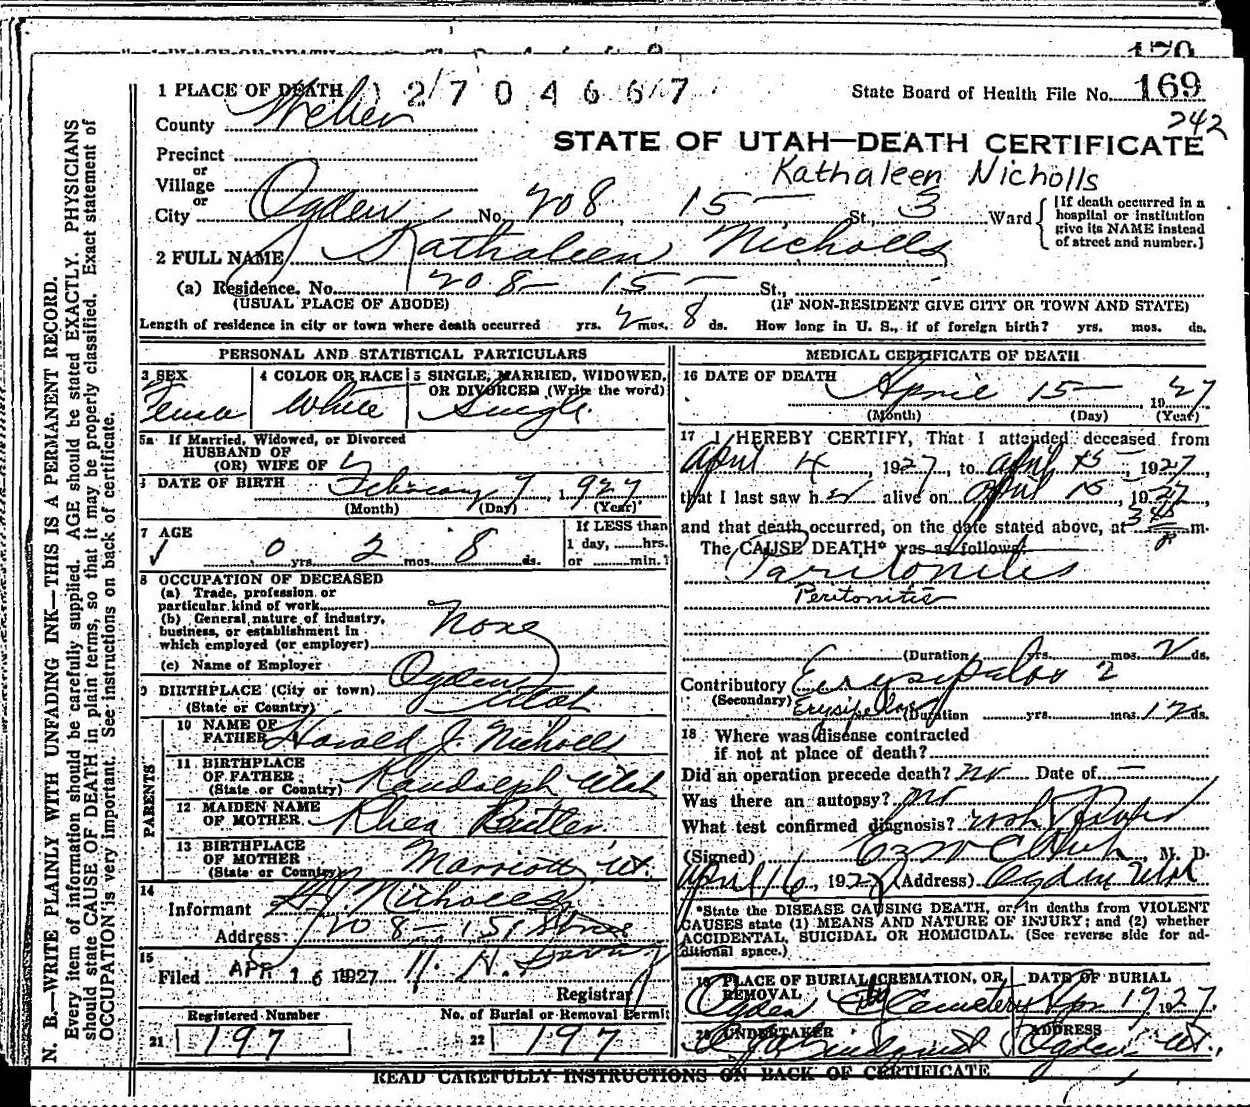 170
1 PLACE OF DEATH 2 7 0 4 6 6 7 State Board of Health File No. 169
242
County Weber
STATE OF UTAH—DEATH CERTIFICATE
Precinct
Kathaleen Nicholls
or
Village
or
City Ogden No. 208, 15 St., 3 Ward
[If death occurred in a hospital or institution give its NAME instead of street and number.]
2 FULL NAME Kathaleen Nicholls
(a) Residence. No. 208 — 15 St.,
(USUAL PLACE OF ABODE) (IF NON-RESIDENT GIVE CITY OR TOWN AND STATE)
Length of residence in city or town where death occurred yrs. 2 mos. 8 ds. How long in U. S., if of foreign birth? yrs. mos. ds.
PERSONAL AND STATISTICAL PARTICULARS
3 SEX 4 COLOR OR RACE 5 SINGLE, MARRIED, WIDOWED, OR DIVORCED (Write the word)
White Single
5a If Married, Widowed, or Divorced
HUSBAND OF
(OR) WIFE OF
DATE OF BIRTH February 7, 1927
(Month) (Day) (Year)
7 AGE
0 yrs. 2 mos. 8 ds.
If LESS than
1 day, ......hrs.
or ......min.
8 OCCUPATION OF DECEASED
(a) Trade, profession or
particular kind of work
(b) General nature of industry,
business, or establishment in
which employed (or employer) None
(c) Name of Employer
9 BIRTHPLACE (City or town) Ogden
(State or Country) Utah
PARENTS
10 NAME OF
FATHER Harold J. Nicholls
11 BIRTHPLACE
OF FATHER
(State or Country) Randolph Utah
12 MAIDEN NAME
OF MOTHER Rhea Butler
13 BIRTHPLACE
OF MOTHER
(State or Country) Marriott Ut.
14
Informant H.J. Nicholls
Address 208 — 15 Street
15
Filed APR 16 1927
Registrar
Registered Number No. of Burial or Removal Permit
21 197 22 197
MEDICAL CERTIFICATE OF DEATH
16 DATE OF DEATH April 15 1927
(Month) (Day) (Year)
17 I HEREBY CERTIFY, That I attended deceased from
April 4, 1927, to April 15, 1927,
that I last saw her alive on April 15, 1927,
and that death occurred, on the date stated above, at 3 45 P m.
The CAUSE DEATH* was as follows:
Paritonitis
Peritonitis
(Duration yrs. mos. 2 ds.
Contributory Eurysipelas 2
(Secondary) Erysipelas
(Duration yrs. mos. 12 ds.
18 Where was disease contracted
if not at place of death?
Did an operation precede death? no Date of —
Was there an autopsy? no
What test confirmed diagnosis? rash
(Signed) M. D.
April 16, 1927 (Address) Ogden Utah
*State the DISEASE CAUSING DEATH, or in deaths from VIOLENT
CAUSES state (1) MEANS AND NATURE OF INJURY; and (2) whether
ACCIDENTAL, SUICIDAL OR HOMICIDAL. (See reverse side for ad-
ditional space.)
19 PLACE OF BURIAL, CREMATION, OR REMOVAL DATE OF BURIAL
Ogden City Cemetery Apr 17 1927.
20 UNDERTAKER ADDRESS
Lindquist Ogden, Ut.,
READ CAREFULLY INSTRUCTIONS ON BACK OF CERTIFICATE
N. B.—WRITE PLAINLY WITH UNFADING INK—THIS IS A PERMANENT RECORD.
Every item of information should be carefully supplied. AGE should be stated EXACTLY. PHYSICIANS
should state CAUSE OF DEATH in plain terms, so that it may be properly classified. Exact statement of
OCCUPATION is very important. See instructions on back of certificate.